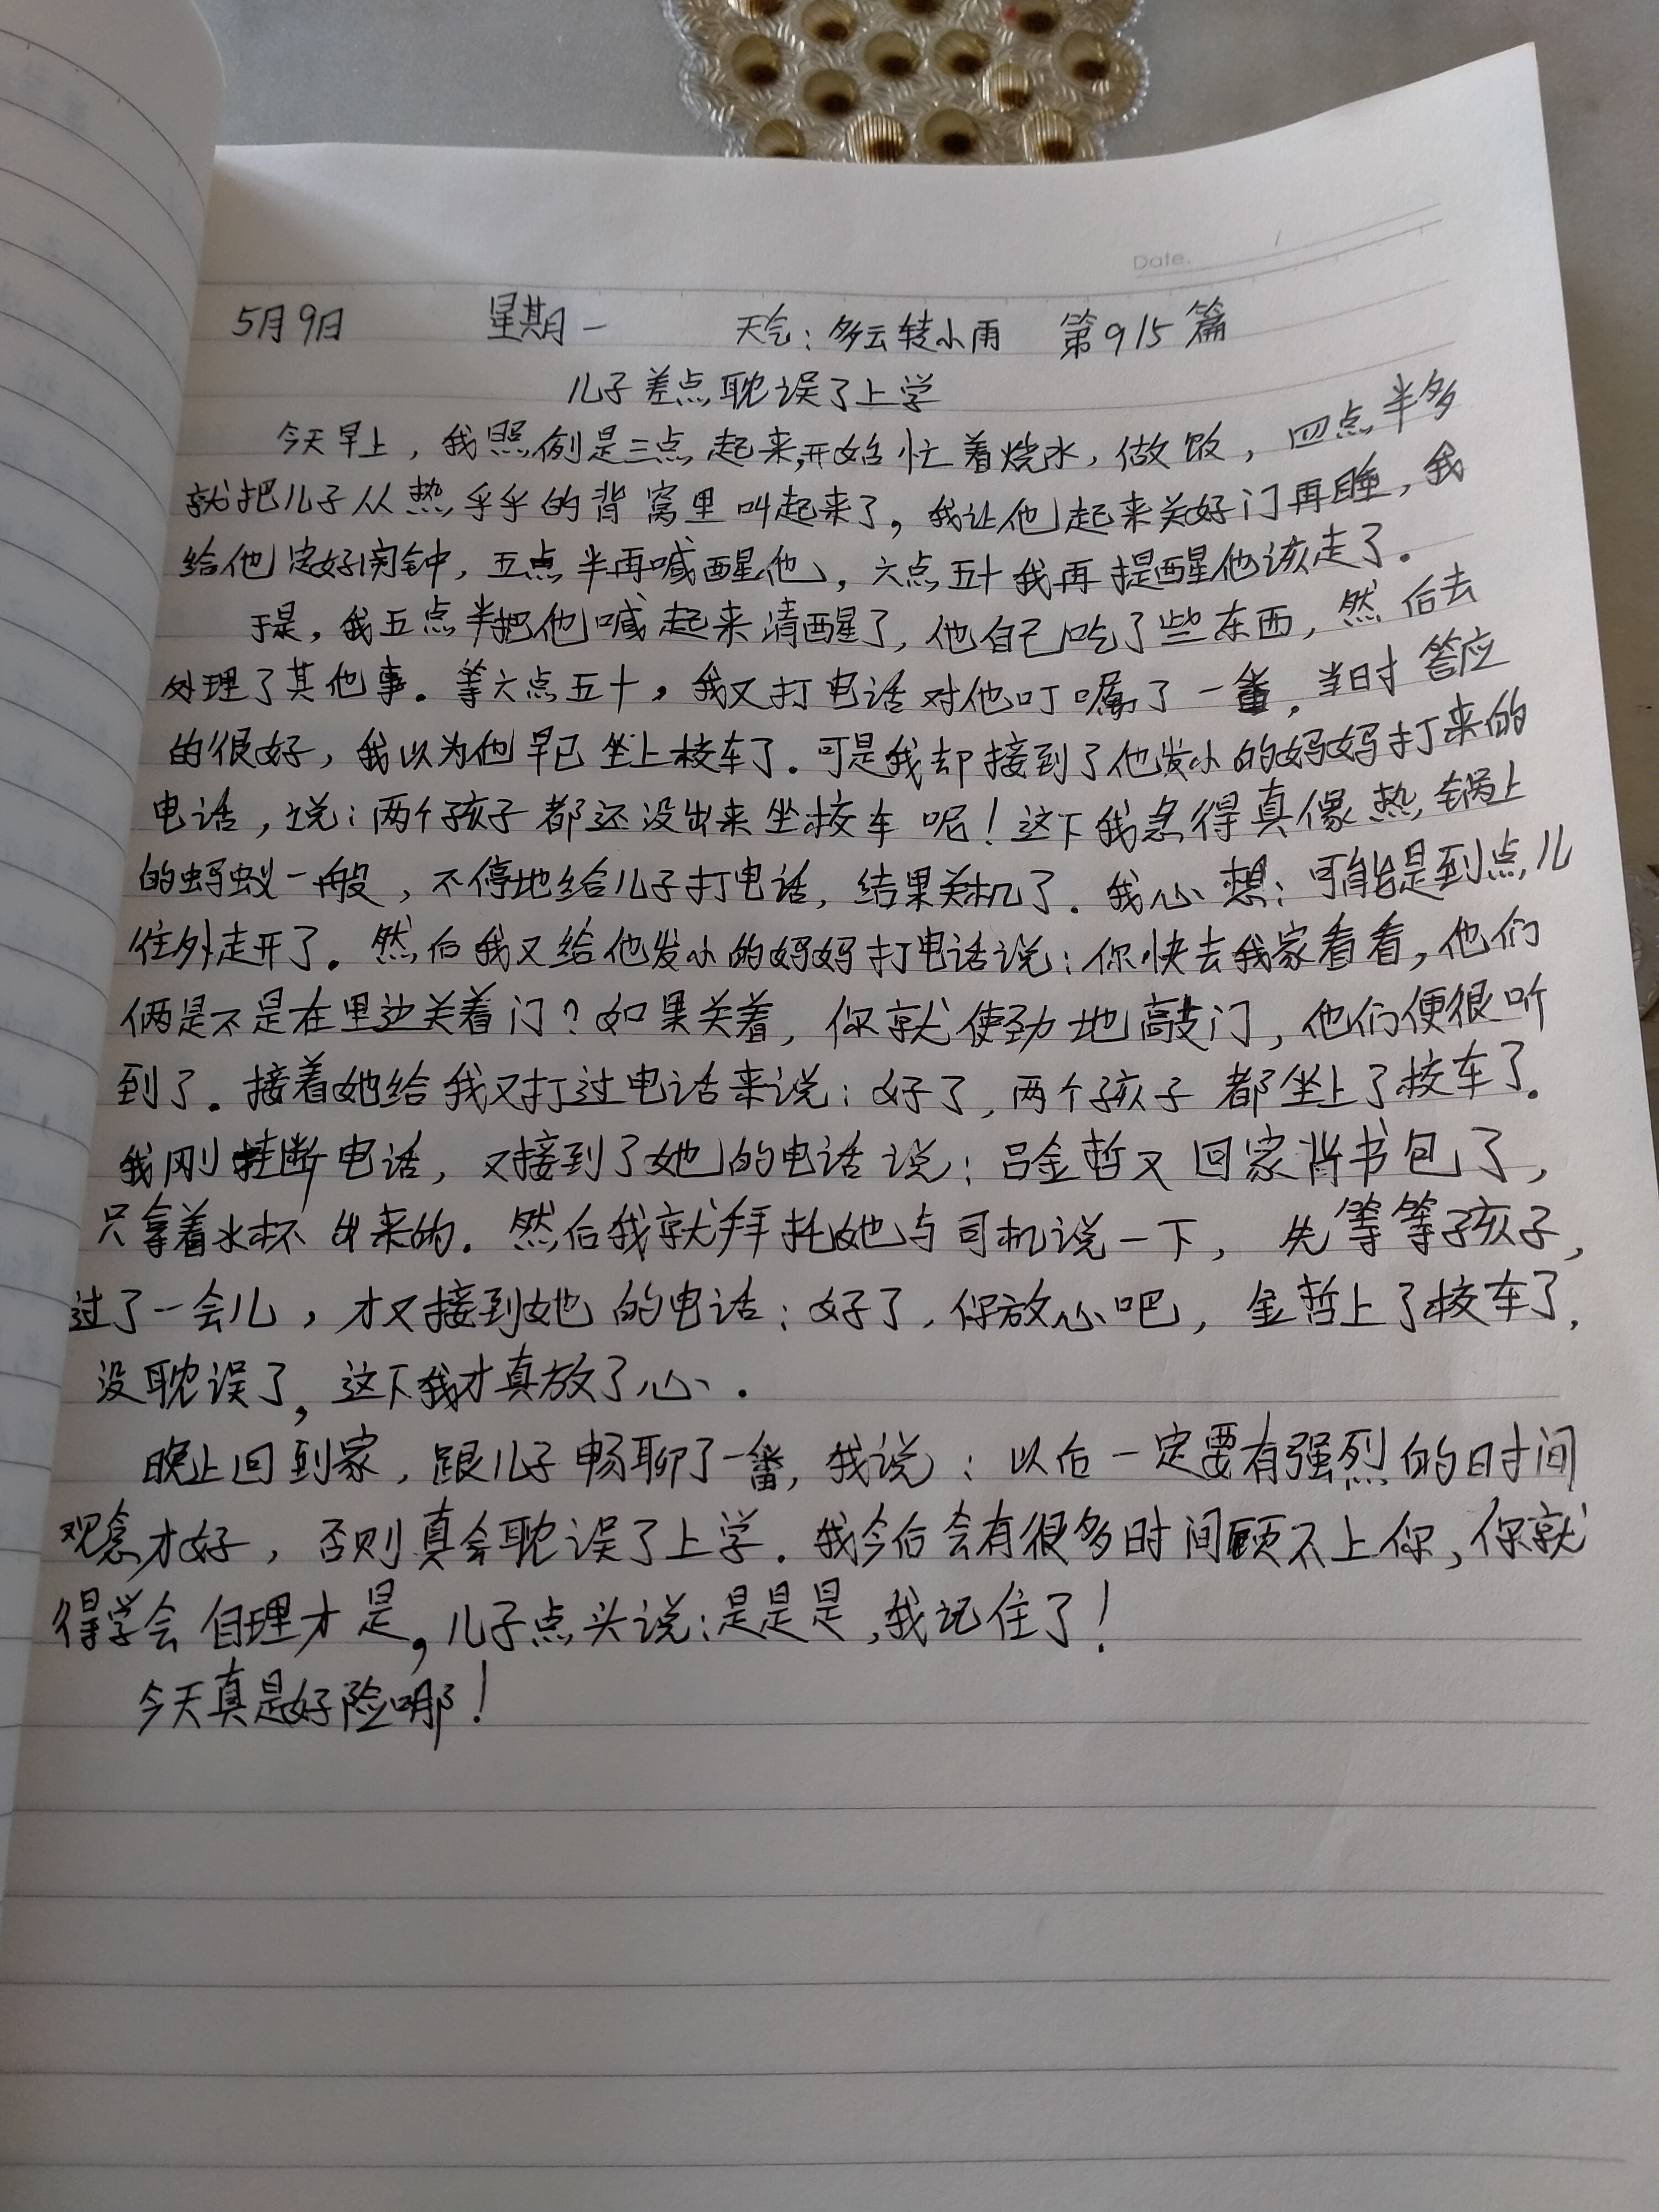 Date.
5月9日 星期一 天气：多云转小雨 第915篇
儿子差点耽误了上学
今天早上，我照例是三点起来,开始忙着烧水，做饭，四点半多
就把儿子从热乎乎的背窝里叫起来了，我让他起来关好门再睡，我
给他定好闹钟，五点半再喊醒他，六点五十我再提醒他该走了.
于是，我五点半把他喊起来清醒了，他自己吃了些东西，然后去
处理了其他事。等六点五十，我又打电话对他叮嘱了一番，当时答应
的很好，我以为他早已坐上校车了.可是我却接到了他发小的妈妈打来的
电话，说：两个孩子都还没出来坐校车呢！这下我急得真像热锅上
的蚂蚁一般，不停地给儿子打电话，结果关机了.我心想：可能是到点儿
往外走开了。然后我又给他发小的妈妈打电话说：你快去我家看看，他们
俩是不是在里边关着门？如果关着，你就使劲地敲门，他们便很听
到了。接着她给我又打过电话来说：好了，两个孩子都坐上了校车了.
我刚挂断电话，又接到了她的电话说：吕金哲又回家背书包了，
只拿着水杯出来的.然后我就拜托她与司机说一下，先等等孩子，
过了一会儿，才又接到她的电话：好了，你放心吧，金哲上了校车了，
没耽误了，这下我才真放了心.
晚上回到家，跟儿子畅聊了一番，我说：以后一定要有强烈的时间
观念才好，否则真会耽误了上学.我今后会有很多时间顾不上你，你就
得学会自理才是，儿子点头说：是是是，我记住了！
今天真是好险哪！